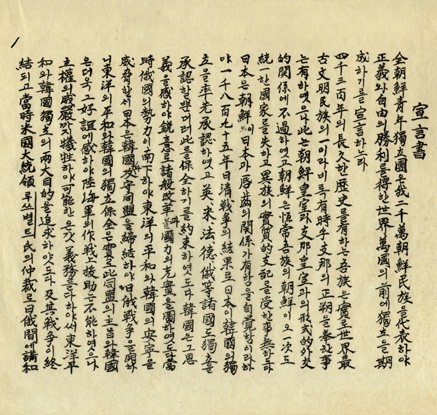 宣言書
全朝鮮靑年獨立團은我二千萬朝鮮民族을代表하야
正義와自由의勝利를得한世界萬國의前에獨立을期
成하기를宣言하노라
四千三百年의長久한歷史를有하는吾族은實로世界最
古文明民族의一이라비록有時乎支那의正朔을奉한事
는有하엿으나此는朝鮮皇室과支那皇室과의形式的外交
的關係에不過하엿고朝鮮은恒常吾族의朝鮮이오一次도
統一한國家를失하고異族의實質的支配를受한事無하도다
日本은朝鮮이日本과脣齒의關係가有함을自覺함이라하
야一千八百九十五年日淸戰爭의結果로日本이韓國의獨
立을率先承認하엿고英、米、法、德、俄等諸國도獨立을
承認할뿐더러此를保全하기를約束하엿도다韓國은그恩
義를感하야銳意로諸般改革과國力의充實을圖하엿도다當
時俄國의勢力이南下하야東洋의平和와韓國의安寧을
威脅할새日本은韓國과攻守同盟을締結하야日俄戰爭을開하
니東洋의平和와韓國의獨立保全은實로此同盟의主旨와韓國
은더욱그好誼에感하야陸海軍의作戰上援助는不能하엿으나
主權의威嚴까지犧牲하야可能한온갓義務를다하야써東洋平
和와韓國獨立의兩大目的을追求하얏도다及其戰爭이終
結되고當時米國大統領루쓰벨트氏의仲裁로日俄間에講和